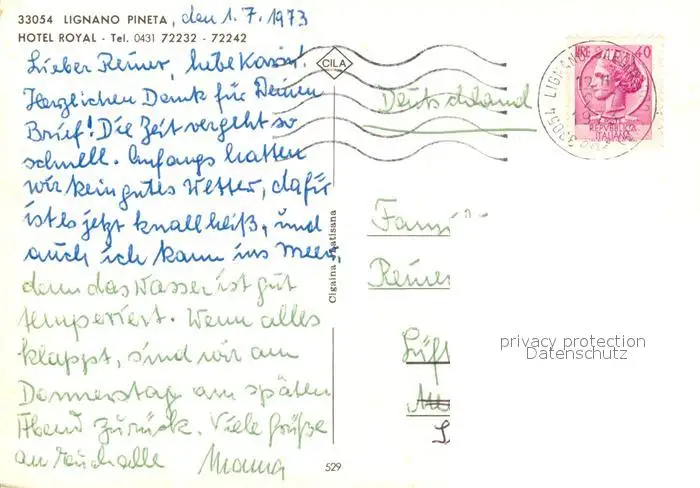 33054 LIGNANO PINETA, den 1.7.1973
HOTEL ROYAL - Tel. 0431 72232 - 72242
Lieber Reiner, liebe Karin!
Herzlichen Dank für Deinen
Brief! Die Zeit vergeht so
schnell. Anfangs hatten
wir kein gutes Wetter, dafür
ist es jetzt knallheiß, und
auch ich kann ins Meer,
denn das Wasser ist gut
temperiert. Wenn alles
klappt, sind wir am
Donnerstag am späten
Abend zurück. Viele Grüße
an Euch alle Mama
CILA
Deutschland
LIRE 40
REPVBBLICA
ITALIANA
33054 LIGNANO
Fami
Reiner
privacy protection
Datenschutz
529